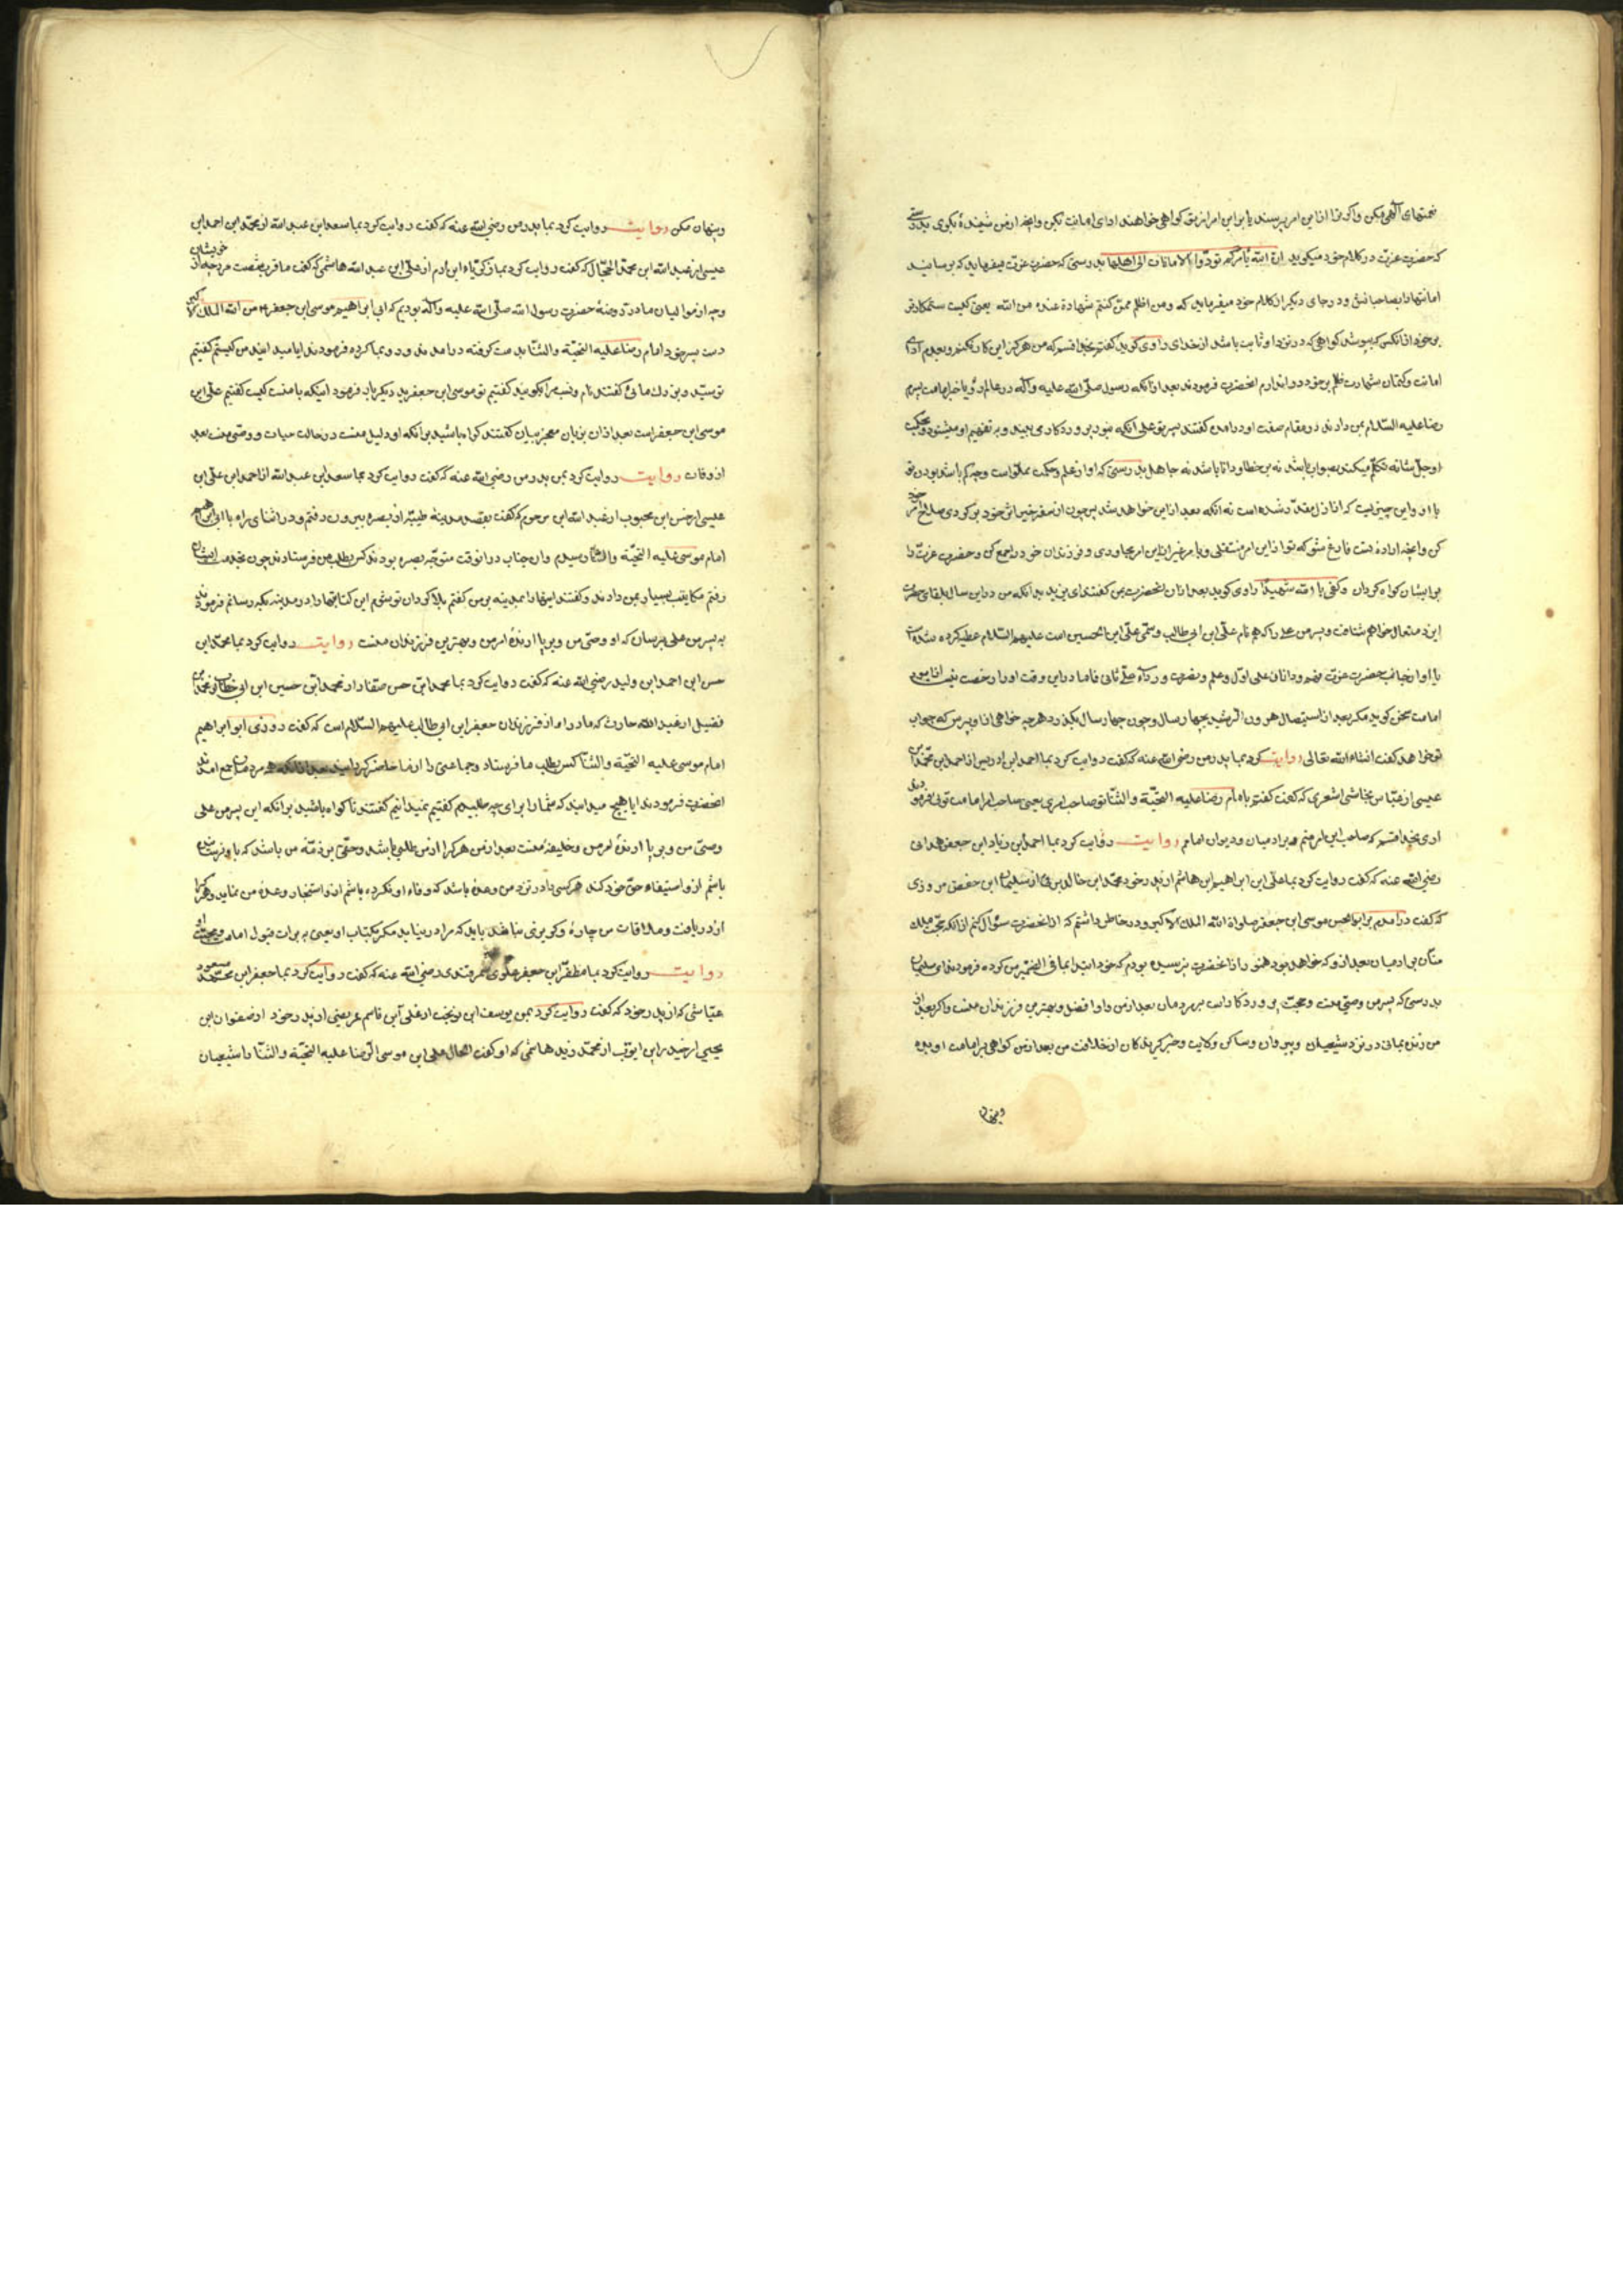 نعمتهای آگهی مکن واگر ترا ازاین امر پرسند یا براین امر از تو گواهی خواهند ادای امانت بکن وانچه از من شنیدهٔ بگوی بدرستی
که حضرت عزت در کلام خود میگوید ان الله یأمرکم ان تودوا الامانات الی اهلها بدرستی که حضرت عزت میفرماید که برسانید
امانتها را بصاحبانش ودرجای دیگر از کلام خود میفرماید که ومن اظلم ممن کتم شهادة عنده من الله یعنی کیست ستمکارتر
برخود ازانکس که بپوشد گواهی که در نزد او ثابت باشد از خدای راوی گوید گفتم بخدا قسم که من هرگز این کار نکنم
امانت وکتمان شهادت ظلم برخود روا ندارم انحضرت فرمودند بعد ازانکه رسول صلی الله علیه وآله در عالم رؤیا خبر امامت پسرم
رضا علیه السلام بمن دادند در مقام صفت او درامدن گفتند پسر تو علی آنکه بنور پروردگار می بیند وبه تفهیم او میشنود وبحکمت
او جل شانه تکلم میکند بصواب باشد نه بر خطا ودانا باشد نه جاهل بدرستی که او از علم وحکمت مملواست وچه کم باشد بودن تو
با او واین چیزیست که از ازل مقدر شده است نه انکه بعد ازاین خواهد شد پس چون از سفر خیر اثر خود برگردی صلاح امر خود
کن وانچه ارادهٔ تست فارغ شو که تو ازاین امر منتقلی وبامر غیر ازاین امر مجاوری وفرزندان خود را جمع کن وحضرت عزت را
برایشان گواه گردان وکفی بالله شهیدا راوی گوید بعد ازان انحضرت بمن گفتند ای یزید بدانکه من دراین سال بلقای حضرت
ایزد متعال خواهم شتافت وپسر من علی را که هم نام علی ابن ابی طالب وسمی علی ابن الحسین است علیهم السلام عطیه کرده شده است
با او از جناب حضرت عزت فهم ودانائی علی اول وعلم ونصرت ورداء علی ثانی فاما دراین وقت او را رخصت نیست تا از امور
امامت سخن گوید مگر بعد از استیصال هرون الرشید بچهار سال وچون چهار سال بگذرد هرچه خواهی ازو بپرس که جواب
تو خواهد گفت انشاء الله تعالی روایت کرد بما پدر من رضی الله عنه که گفت روایت کرد بما احمد ابن ادریس از احمد ابن محمد ابن
عیسی از عباس نجاشی اشعری که گفت گفتم بامام رضا علیه التحیة والثنا تو صاحب امری یعنی صاحب امر امامت توئی فرمودند
اری بخدا قسم که صاحب این امر منم وبر ادمیان ودیوان امامم روایت روایت کرد بما احمد ابن زیاد ابن جعفر همدانی
رضی الله عنه که گفت روایت کرد بما علی ابن ابراهیم ابن هاشم از پدر خود محمد ابن خالد برقی از سلیمان ابن حفص مروزی
که گفت درامدم بر ابو الحسن موسی ابن جعفر صلواة الله الملک الاکبر ودر خاطر داشتم که ازانحضرت سؤال کنم ازانکه حجت ملک
منان بر ادمیان بعد ازو که خواهد بود هنوز ازانحضرت نپرسیده بودم که خود ابتدا بما فی الضمیر من کرده فرمودند ای سلیمان
بدرستی که پسر من وصی منست وحجت پروردگار است بر مردمان بعد از من واو افضل وبهترین فرزندان منست واگر بعد از
من زنده بمانی در نزد شیعیان وپیروان وساکن ولایت وخبر گیرندگان از خلافت من بعد از من گواهی بر امامت او بده
وپنهان
وپنهان مکن روایت روایت کرد بما پدر من رضی الله عنه که گفت روایت کرد بما سعد ابن عبد الله از محمد ابن احمد ابن
عیسی از عبد الله ابن محمد الحجال که گفت روایت کرد بما زکریاء ابن ادم از علی ابن عبد الله هاشمی که گفت ما قریب شصت مرد چه از خویشان
وچه از موالیان ما در روضهٔ حضرت رسول الله صلی الله علیه وآله بودیم که ابی ابراهیم موسی ابن جعفر من الله الملک الاکبر
دست پسر خود امام رضا علیه التحیة والثنا بدست گرفته درامدند ورو بما کرده فرمودند ایا میدانید من کیستم گفتیم
تو سید وبزرك مائی گفتند نام ونسب مرا بگویید گفتیم تو موسی ابن جعفرید دیگر بار فرمود اینکه با منست کیست گفتیم علی ابن
موسی ابن جعفر است بعد ازان بزبان معجز بیان گفتند گواه باشید برآنکه او دلیل منست در حالت حیات ووصی منست بعد
از وفات روایت روایت کرد بمن پدر من رضی الله عنه که گفت روایت کرد بما سعد ابن عبد الله از احمد ابن علی ابن
عیسی از حسن ابن محبوب از عبد الله ابن مرحوم که گفت بقصد مدینه طیبه از بصره بیرون رفتم ودر اثنای راه با ابی ابراهیم
امام موسی علیه التحیة والثنا رسیدم وان جناب درانوقت متوجه بصره بودند کس بطلب من فرستادند چون بخدمت ایشان
رفتم مکاتیب بسیار بمن دادند وگفتند اینها را بمدینه برس گفتم بلا گردان تو شوم این کتابتها را در مدینه بکه رسانم فرمودند
به پسر من علی برسان که او وصی من وبرپا ارندهٔ امر من وبهترین فرزندان منست روایت روایت کرد بما محمد ابن
حسن ابن احمد ابن ولید رضی الله عنه که گفت روایت کرد بما محمد ابن حسن صفار از محمد ابن حسین ابن ابی خطاب از محمد ابن
فضیل از عبد الله حارث که مادر او از فرزندان جعفر ابن ابی طالب علیهم السلام است که گفت روزی ابو ابراهیم
امام موسی علیه التحیة والثنا کس بطلب ما فرستاد وجماعتی را از ما حاضر گردانید بعد ازانکه مردمان جمع امدند
انحضرت فرمودند ایا هیچ میدانید که شما را برای چه طلبیدم گفتیم نمیدانیم گفتند تا گواه باشید برانکه این پسر من علی
وصی من وبرپا ارندهٔ امر من وخلیفهٔ منست بعد از من هرکرا از من طلبی باشد وحقی بر ذمهٔ من باشد که با وقرض
باشم ازو استیفاء حق خود کند هرکسی را در نزد من وعدهٔ باشد که وفاء او نکرده باشم ازو استنجاز وعدهٔ من نماید وهرکرا
از دریافت وملاقات من چارهٔ وگریزی نباشد باید که مرا در نیابد مگر بکتاب او یعنی به برات قبول امامت وحجت او
روایت روایت کرد بما مظفر ابن جعفر علوی سمرقندی رضی الله عنه که گفت روایت کرد بما جعفر ابن محمد مسعود
عیاشی که از پدر خود که گفت روایت کرد بمن یوسف ابن از علی ابن قاسم عریضی از پدر خود از صفوان ابن
یحیی از حیدر ابن ایوب از محمد زید هاشمی که او گفت الحال علی ابن موسی الرضا علیه التحیة والثنا را شیعیان